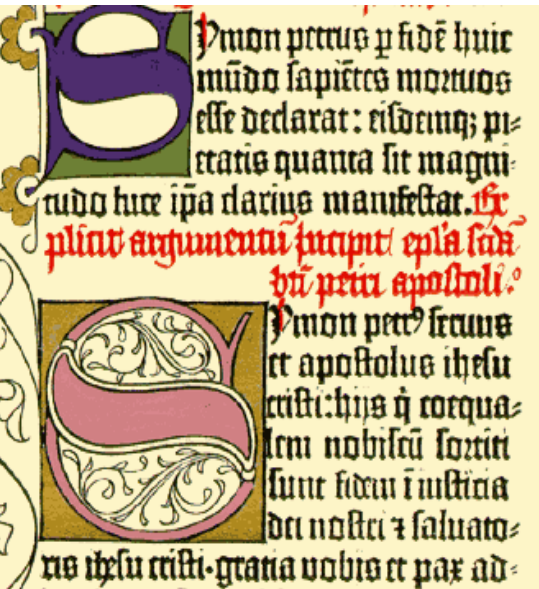 Symon petrus ꝑ fidē huic
mūdo sapiētes mortuos
esse declarat: eisdemqꝫ pi⸗
etatis quanta sit magni⸗
tudo luce ip̄a clarius manifestat. Ex⸗
plicit argumentū Incipit epl̄a scd̄a
bt̄i petri apostoli.
Symon petrꝰ seruus
et apostolus ihesu
cristi: hijs q̄ coequa⸗
lem nobiscū sortiti
sunt fidem ī iusticia
dei nostri ⁊ saluato⸗
ris ihesu cristi·gratia vobis et pax ad⸗